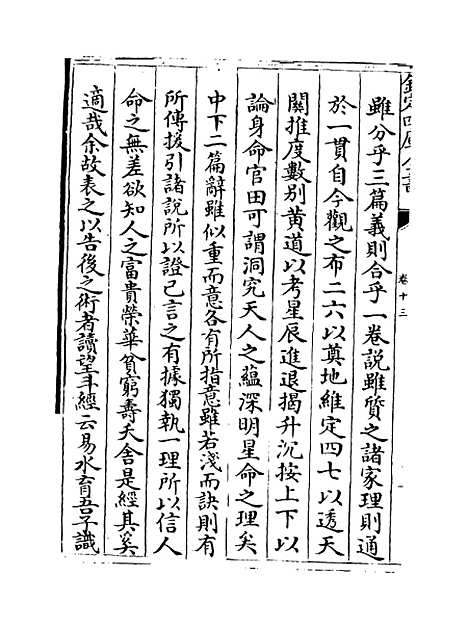 欽定四庫全書
卷十三
雖分乎三篇義則合乎一卷說雖質之諸家理則通
於一貫自今觀之布二六以奠地維定四七以透天
關推度數別黄道以考星辰進退揭升沉按上下以
論身命官田可謂洞究天人之蘊深明星命之理矣
中下二篇辭雖似重而意各有所指意雖若淺而訣則有
所傳援引諸說所以證已言之有據獨執一理所以信人
命之無差欲知人之富貴榮華貧窮壽夭舍是經其奚
適哉余故表之以告後之術者讀望斗經云易水育吾子識